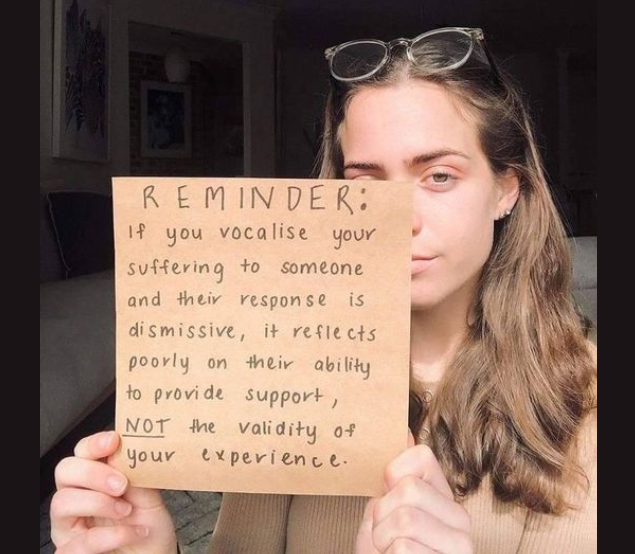 REMINDER:
If you vocalise your
suffering to someone
and their response is
dismissive, it reflects
poorly on their ability
to provide support,
NOT the validity of
your experience.